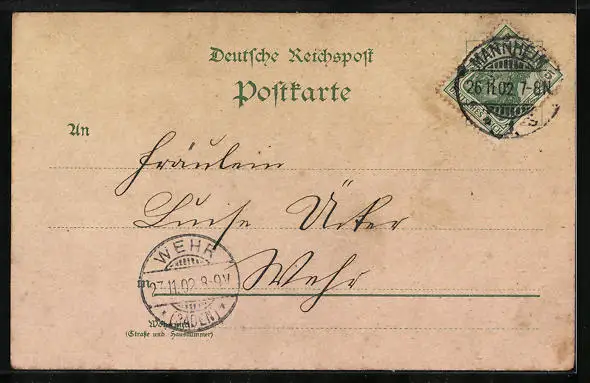 Deutsche Reichspost
Postkarte
MANNHEIM
26 11.02 7-8N.
An
Fräulein
Luise
Wehr
WEHR
in
27.11.02.8-9V.
(BADEN)
(Straße und Hausnummer)